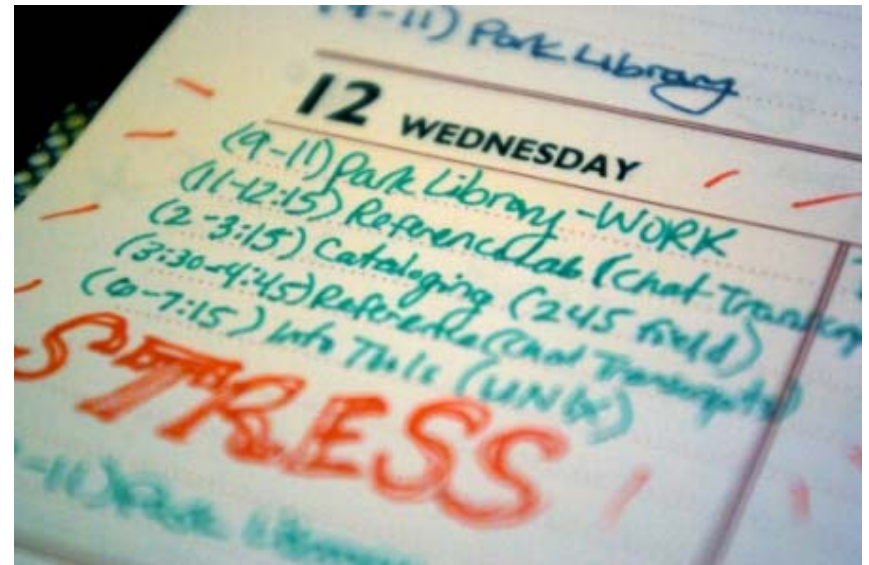 9-11) Park Library
12 WEDNESDAY
(9-11) Park Library - WORK
(11-12:15) Reference Lab (Chat Transcrip
(2-3:15) Cataloging (245 field)
(3:30-4:45) Reference (Chat Transcripts)
(6-7:15) Info Tools (UNIX)
STRESS
-11) Park Library